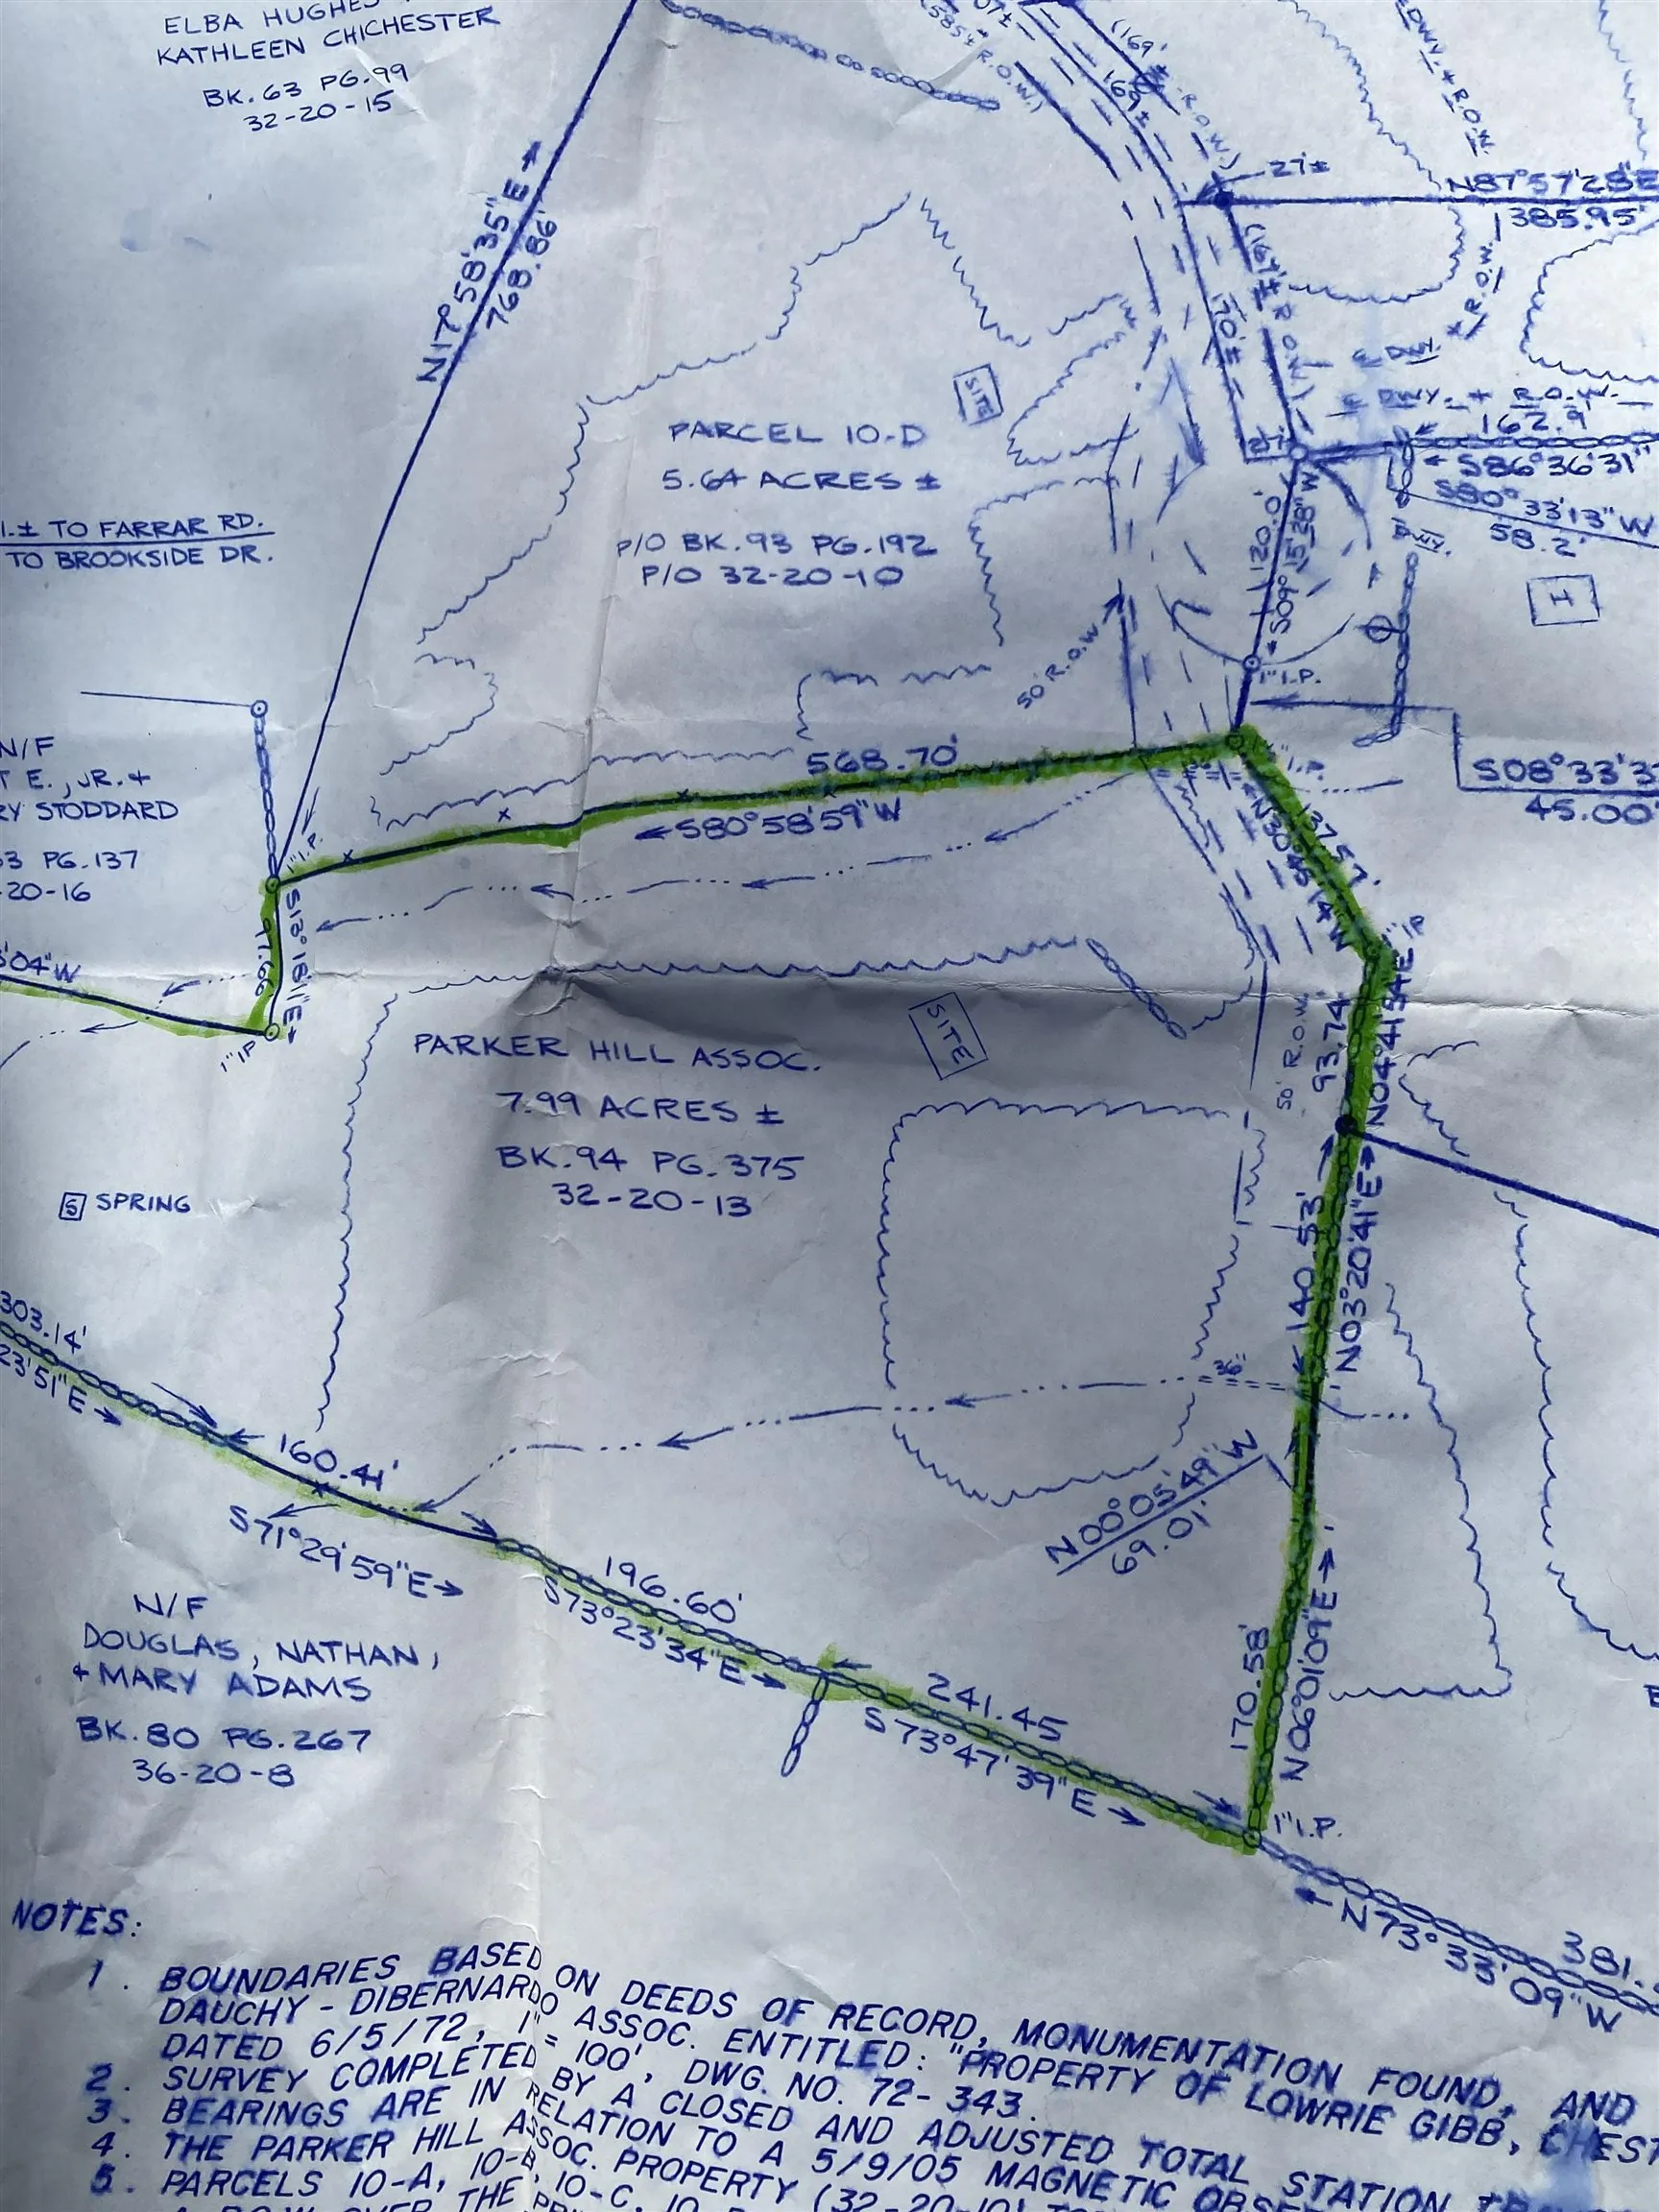 ELBA HUGHES
KATHLEEN CHICHESTER
BK. 63 PG. 99
32-20-15
N17°58'35"E
768.86'
(585± R.O.W.)
(169'
169'±
R.O.W.)
DWY. + R.O.W.
27±
N87°57'28"E
385.95'
R.O.W.
℄ DWY.
℄ DWY. + R.O.W.
162.9'
S86°36'31"
S80°33'13"W
58.2'
DWY.
H
SITE
PARCEL 10-D
5.64 ACRES ±
P/O BK. 93 PG. 192
P/O 32-20-10
± TO FARRAR RD.
TO BROOKSIDE DR.
120.0'
S09°15'28"W
50' R.O.W.
1" I.P.
568.70'
S80°58'59"W
S08°33'3
45.00'
N/F
T E., JR. +
RY STODDARD
3 PG. 137
-20-16
1" I.P.
97.66
1" I.P.
'04"W
137.57'
I.P.
93.74'
N04°41'54"E
50' R.O.W.
SITE
PARKER HILL ASSOC.
7.99 ACRES ±
BK. 94 PG. 375
32-20-13
S SPRING
140.53'
N03°20'41"E
36"
303.14'
23'51"E
160.41'
S71°29'59"E
N00°05'49"W
69.01'
196.60'
S73°23'34"E
241.45
S73°47'39"E
170.58'
N06°01'09"E
1" I.P.
N/F
DOUGLAS, NATHAN,
+ MARY ADAMS
BK. 80 PG. 267
36-20-8
381.
N73°33'09"W
NOTES:
1. BOUNDARIES BASED ON DEEDS OF RECORD, MONUMENTATION FOUND, AND
DAUCHY - DIBERNARDO ASSOC. ENTITLED: "PROPERTY OF LOWRIE GIBB, CHEST
DATED 6/5/72, 1" = 100', DWG. NO. 72-343.
2. SURVEY COMPLETED BY A CLOSED AND ADJUSTED TOTAL STATION
3. BEARINGS ARE IN RELATION TO A 5/9/05 MAGNETIC OBSER
4. THE PARKER HILL ASSOC. PROPERTY (32-20-10)
5. PARCELS 10-A, 10-B, 10-C, 10